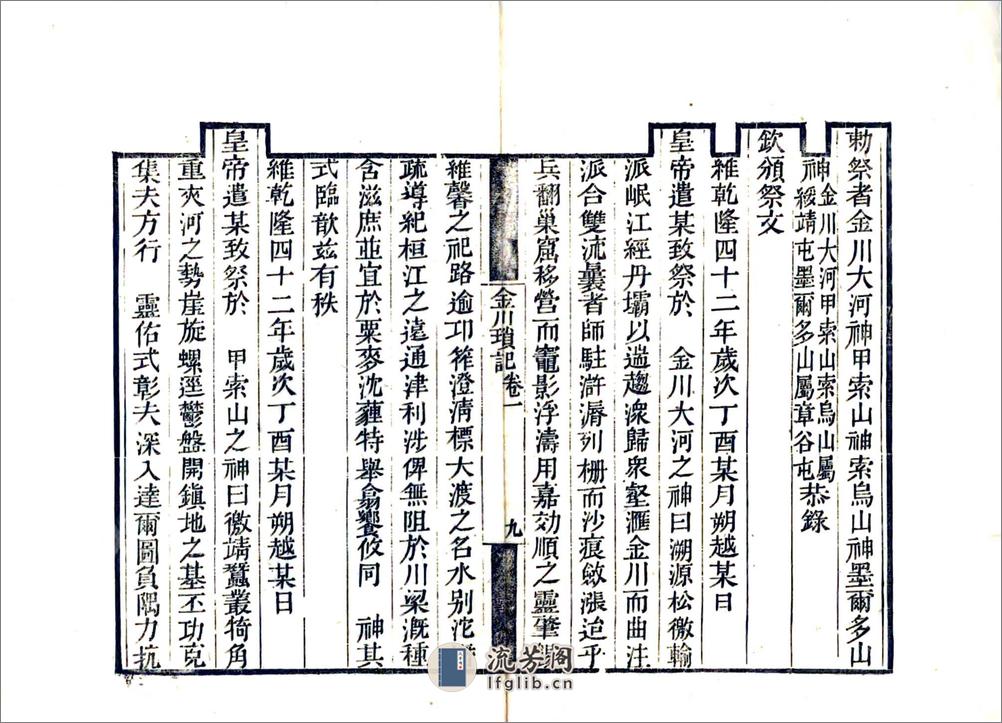 勅祭者金川大河神甲索山神索烏山神墨爾多山
神金川大河甲索山索烏山屬
綏靖屯墨爾多山屬章谷屯恭錄
欽頒祭文
維乾隆四十二年歲次丁酉某月朔越某日
皇帝遣某致祭於　金川大河之神曰溯源松徼輸
派岷江經丹壩以遄趨滌歸衆壑滙金川而曲注
派合雙流曩者師駐滸漘列柵而沙痕斂漲迨乎
兵翻巢窟移營而竈影浮濤用嘉効順之靈肇
維馨之祀路逾卭筰澄淸標大渡之名水别沱
疏導紀桓江之遠通津利涉俾無阻於川梁溉種
含滋庶並宜於粟麥沈薶特舉翕饗攸同　神其
式臨歆兹有秩
維乾隆四十二年歲次丁酉某月朔越某日
皇帝遣某致祭於　甲索山之神曰徼靖蠶叢犄角
重夾河之勢崖旋螺逕鬱盤開鎮地之基丕功克
集夫方行　靈佑式彰夫深入達爾圖負隅力抗
金川瑣記　卷一　九
流芳閣
lfglib.cn